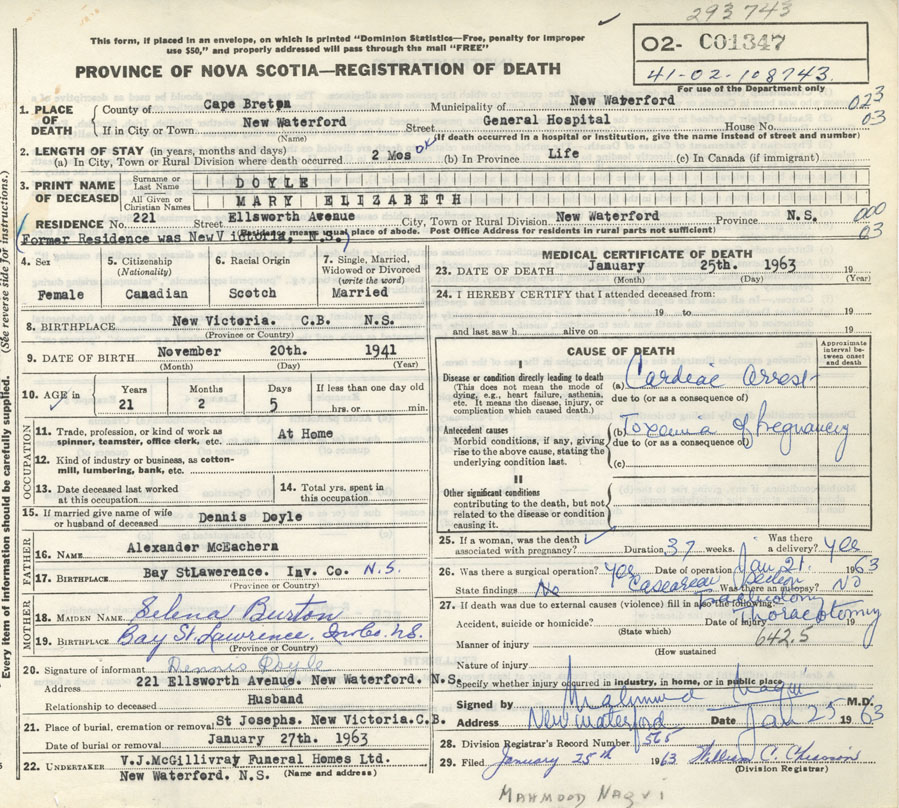 293743
This form, if placed in an envelope, on which is printed "Dominion Statistics—Free, penalty for improper
use $50," and properly addressed will pass through the mail "FREE"
02- C01347
41-02-108743
For use of the Department only
PROVINCE OF NOVA SCOTIA—REGISTRATION OF DEATH
1. PLACE OF DEATH County of Cape Breton Municipality of New Waterford 023
If in City or Town New Waterford Street General Hospital House No. 03
(Name) (If death occurred in a hospital or institution, give the name instead of street and number)
2. LENGTH OF STAY (in years, months and days)
(a) In City, Town or Rural Division where death occurred 2 Mos OK (b) In Province Life (c) In Canada (if immigrant)
3. PRINT NAME OF DECEASED Surname or Last Name DOYLE
All Given or Christian Names MARY ELIZABETH
RESIDENCE No. 221 Street Ellsworth Avenue City, Town or Rural Division New Waterford Province N.S. 000
Residence means usual place of abode. Post Office Address for residents in rural parts not sufficient) 03
(Former Residence was New Victoria, N.S.)
4. Sex Female
5. Citizenship (Nationality) Canadian
6. Racial Origin Scotch
7. Single, Married, Widowed or Divorced (write the word) Married
8. BIRTHPLACE New Victoria. C.B. N.S.
(Province or Country)
9. DATE OF BIRTH November 20th. 1941
(Month) (Day) (Year)
10. AGE in Years 21 Months 2 Days 5 If less than one day old hrs. or min.
OCCUPATION
11. Trade, profession, or kind of work as spinner, teamster, office clerk, etc. At Home
12. Kind of industry or business, as cotton-mill, lumbering, bank, etc.
13. Date deceased last worked at this occupation
14. Total yrs. spent in this occupation
15. If married give name of wife or husband of deceased Dennis Doyle
FATHER
16. NAME Alexander McEachern
17. BIRTHPLACE Bay StLawerence. Inv. Co. N.S.
(Province or Country)
MOTHER
18. MAIDEN NAME Selena Burton
19. BIRTHPLACE Bay St. Lawrence, Inv Co. N.S.
(Province or Country)
20. Signature of informant Dennis Doyle
Address 221 Ellsworth Avenue. New Waterford. N.S.
Relationship to deceased Husband
21. Place of burial, cremation or removal St Josephs. New Victoria.C.B.
Date of burial or removal January 27th. 1963
22. UNDERTAKER V.J.McGillivray Funeral Homes Ltd.
New Waterford. N.S. (Name and address)
MEDICAL CERTIFICATE OF DEATH
23. DATE OF DEATH January 25th. 1963 19
(Month) (Day) (Year)
24. I HEREBY CERTIFY that I attended deceased from:
19 to 19
and last saw h alive on 19
CAUSE OF DEATH
Approximate interval between onset and death
I
Disease or condition directly leading to death
(This does not mean the mode of dying, e.g., heart failure, asthenia, etc. It means the disease, injury, or complication which caused death.)
(a) Cardiac Arrest
due to (or as a consequence of)
Antecedent causes
Morbid conditions, if any, giving rise to the above cause, stating the underlying condition last.
(b) Toxemia of Pregnancy
due to (or as a consequence of)
(c)
II
Other significant conditions
contributing to the death, but not related to the disease or condition causing it.
25. If a woman, was the death associated with pregnancy? Duration 37 weeks. Was there a delivery? Yes
26. Was there a surgical operation? Yes Date of operation Jan 21. 1963
State findings No Caesarean Section Was there an autopsy? No
27. If death was due to external causes (violence) fill in also the following:
Accident, suicide or homicide? Date of injury 19
Thoracotomy
(State which) 642.5
Manner of injury
(How sustained)
Nature of injury
Specify whether injury occurred in industry, in home, or in public place
Signed by Mahmood Naqvi M.D.
Address New Waterford Date Jan 25 1963
28. Division Registrar's Record Number 565
29. Filed January 25th 1963 William C. Chiasson
(Division Registrar)
MAHMOOD NAQVI
Every item of information should be carefully supplied. (See reverse side for instructions.)